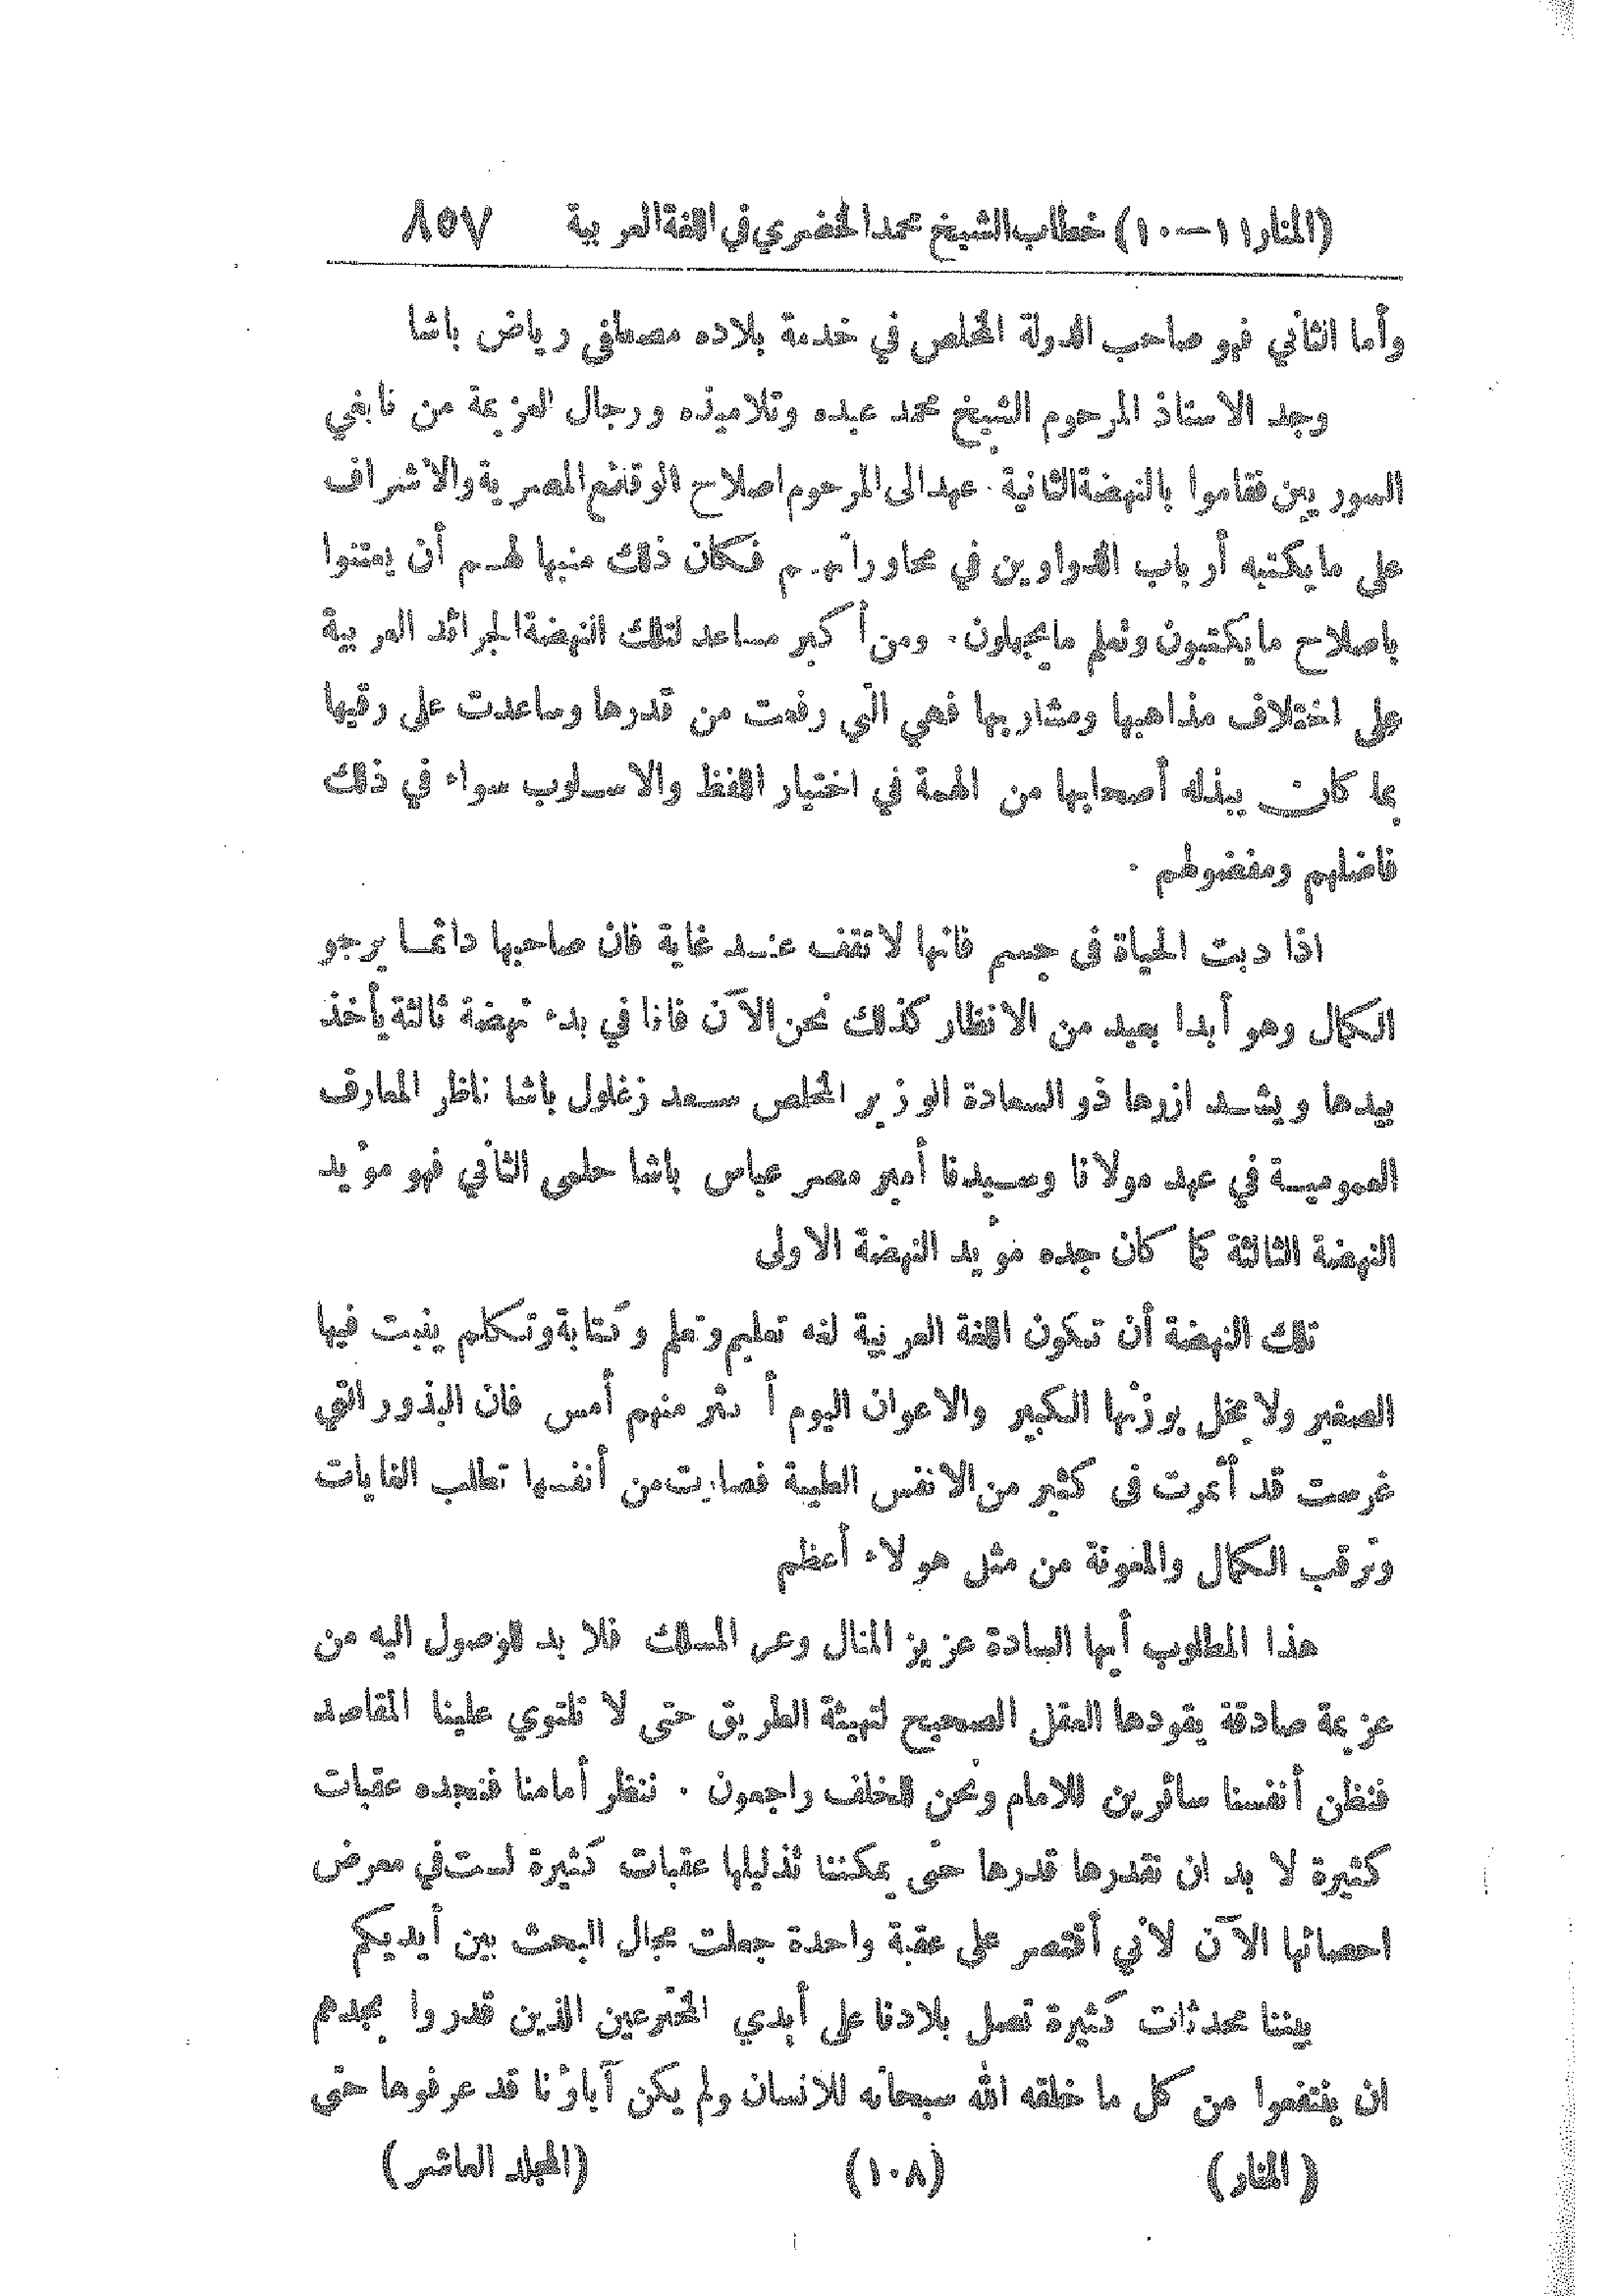 (المنار ١١ — ١٠) خطاب الشيخ محمد الخضري في اللغة العربية ٨٥٧
وأما الثاني فهو صاحب الدولة المخلص في خدمة بلاده مصطفى رياض باشا
وجد الاستاذ المرحوم الشيخ محمد عبده وتلاميذه ورجال العزيمة من نابغي
السوريين فقاموا بالنهضة الثانية . عهد الى المرحوم اصلاح الوقائع المصرية والاشراف
على ما يكتبه أرباب الدواوين في محاوراتهم فكان ذلك منبها لهم أن يعتنوا
باصلاح ما يكتبون وتعلم ما يجهلون . ومن أكبر مساعد لتلك النهضة الجرائد العربية
على اختلاف مذاهبها ومشاربها فهي التي رفعت من قدرها وساعدت على رقيها
بما كان يبذله أصحابها من الهمة في اختيار اللفظ والاسلوب سواء في ذلك
فاضلهم ومفضولهم .
اذا دبت الحياة في جسم فانها لا تقف عند غاية فان صاحبها دائما يرجو
الكمال وهو أبدا بعيد من الانتظار كذلك نحن الآن فانا في بدء نهضة ثالثة يأخذ
بيدها ويشد ازرها ذو السعادة الوزير المخلص سعد زغلول باشا ناظر المعارف
العمومية في عهد مولانا وسيدنا أمير مصر عباس باشا حلمي الثاني فهو مؤيد
النهضة الثالثة كما كان جده مؤيد النهضة الاولى
تلك النهضة أن تكون اللغة العربية لغة تعليم وتعلم وكتابة وتكلم ينبت فيها
الصغير ولا يخل بوزنها الكبير والاعوان اليوم أكثر منهم أمس فان البذور التي
غرست قد أثمرت في كثير من الانفس الطيبة فصارت من أنفسها تطلب الغايات
وترقب الكمال والمعونة من مثل هولاء أعظم
هذا المطلوب أيها السادة عزيز المنال وعر المسلك فلا بد للوصول اليه من
عزيمة صادقة يقودها العقل الصحيح لتهيئة الطريق حتى لا تلتوي علينا المقاصد
فنظن أنفسنا سائرين للامام ونحن للخلف راجعون . ننظر أمامنا فنجده عقبات
كثيرة لا بد ان نقدرها قدرها حتى يمكننا تذليلها عقبات كثيرة لست في معرض
احصائها الآن لأني أقتصر على عقبة واحدة جعلت مجال البحث بين أيديكم
بيننا محدثات كثيرة تصل بلادنا على أيدي المخترعين الذين قدروا بجدهم
ان ينتفعوا من كل ما خلقه الله سبحانه للانسان ولم يكن آباؤنا قد عرفوها حتى
(المنار) (١٠٨) (المجلد العاشر)